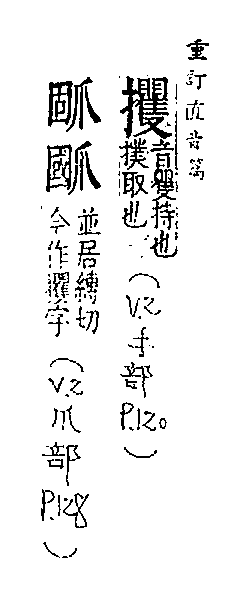 重訂直音篇
攫音矍持也
撲取也
(V.2
手部
P.120)
𤔍𤔔並居縛切
今作攫字
(V.2
爪部
P.128)